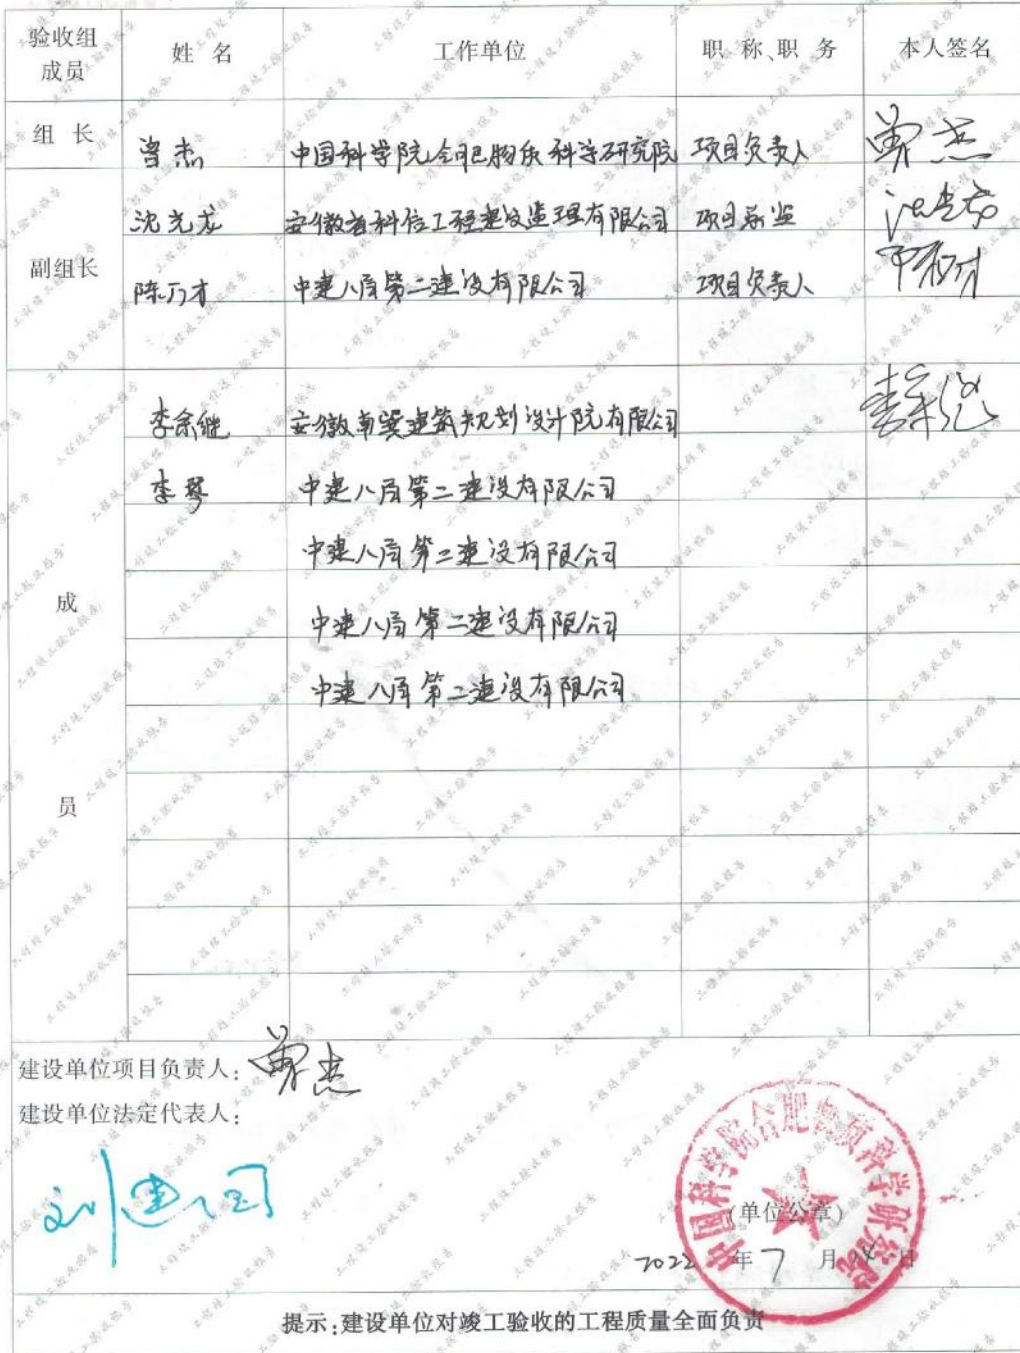 验收组成员 姓 名 工作单位 职 称、职 务 本人签名
组 长 曾杰 中国科学院合肥物质科学研究院 项目负责人 曾杰
沈光龙 安徽省科信工程建设监理有限公司 项目总监
副组长
陈万才 中建八局第二建设有限公司 项目负责人
李余继 安徽 建筑规划设计院有限公司
李琴 中建八局第二建设有限公司
中建八局第二建设有限公司
成
中建八局第二建设有限公司
中建八局第二建设有限公司
员
建设单位项目负责人: 曾杰
建设单位法定代表人:
刘建国
中国科学院合肥物质科学研究院
(单位公章)
2022 年 7 月 日
提示:建设单位对竣工验收的工程质量全面负责
工程竣工验收报告